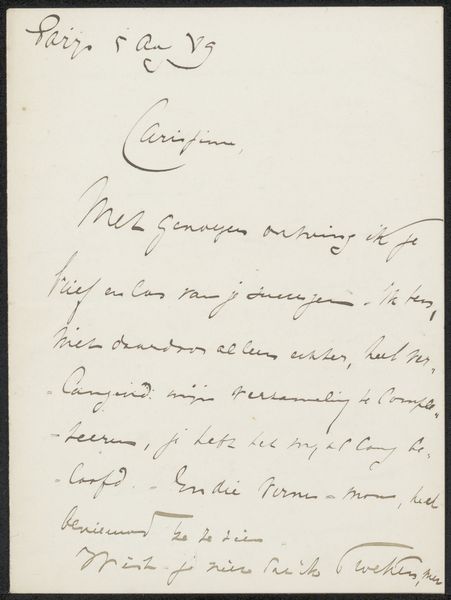 Parijs 5 Aug 89
Carissime,
Met genoegen ontving ik je
brief en las van je . Ik ben,
niet daardoor alleen echter, heel ver-
-langend mijn verzameling te comple-
-teeren, je hebt het mij al lang be-
-loofd. - En die - , heel
benieuwd te zien
Wist je niet dat ik